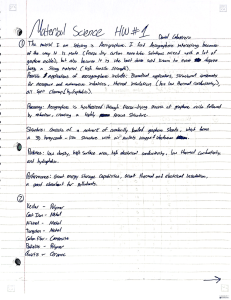 Material Science HW #1
① The material I am selecting is Aerographene. I find Aerographene interesting because
of the way it is made (freeze dry carbon nanotube solutions mixed with a lot of
graphene oxide), but also because it is the least dense solid known to man
being a strong material (high tensile strength).
Possible applications of aerographene include: Biomedical applications, structural components
for aerospace and automotive industries, thermal insulators (has low thermal conductivity),
oil spill cleanup (hydrophobic).
Processing: Aerographene is synthesized through freeze-drying
of graphene oxide followed
by reduction, creating a highly porous structure.
Structure: Consists of a network of randomly oriented graphene sheets, which
a 3D structure with air pockets
Properties: low density, high surface area, high electrical conductivity, low thermal conductivity,
and hydrophobic.
Performance: Great energy storage capabilities, great thermal and electrical insulation,
a good absorbent for pollutants.
②
Kevlar - Polymer
Cast Iron - Metal
Nickel - Metal
Tungsten - Metal
- Polymer
- Ceramic